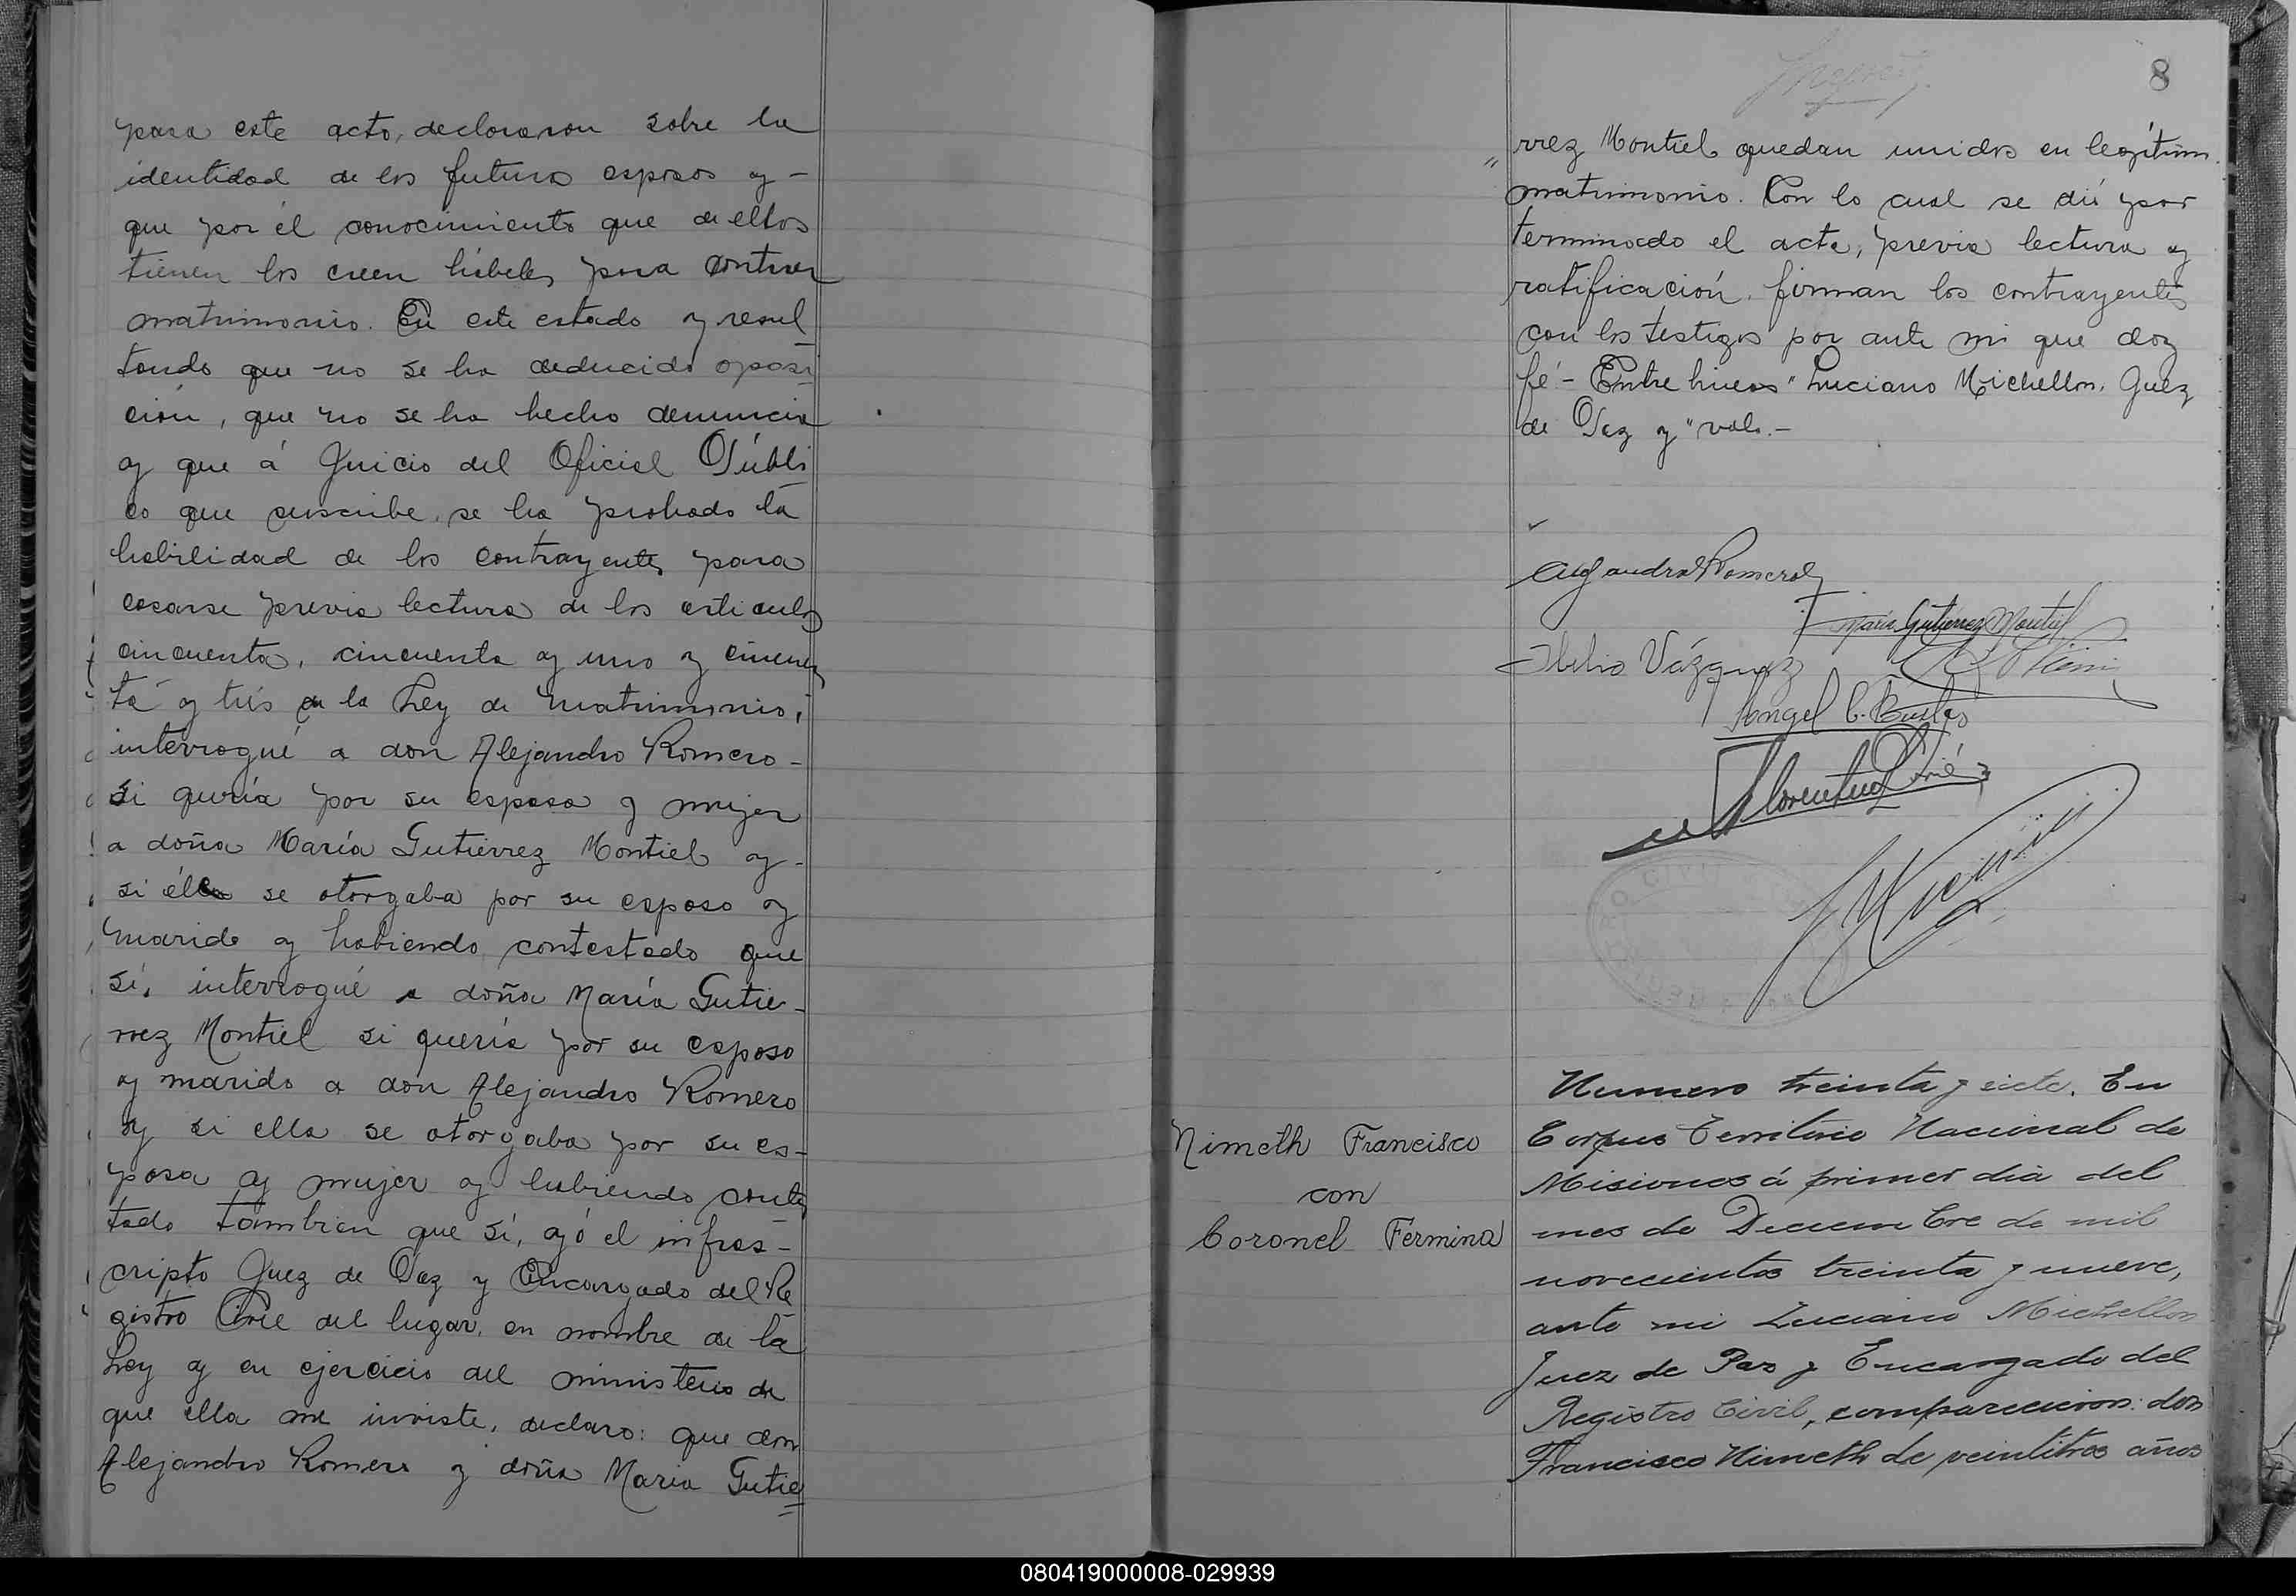 para este acto, declararon sobre la
identidad de los futuros esposos y -
que por el conocimiento que de ellos
tienen los creen hábiles para contraer
matrimonio. En este estado y resul
tando que no se ha deducido oposi
ción, que no se ha hecho denuncia
y que á Juicio del Oficial Públi
co que suscribe, se ha probado la
habilidad de los contrayentes para
casarse previa lectura de los articulos
cincuenta, cincuenta y uno y cincuen
ta y tres de la Ley de Matrimonio,
interrogué a don Alejandro Romero -
si quería por su esposa y mujer
a doña María Gutiérrez Montiel y -
si él se otorgaba por su esposo y
marido y habiendo contestado que
sí, interrogué a doña María Gutié-
rrez Montiel si quería por su esposo
y marido a don Alejandro Romero
y si ella se otorgaba por su es-
posa y mujer y habiendo contes
tado tambien que sí, yó el infras-
cripto Juez de Paz y Encargado del Re
gistro Civil del lugar, en nombre de la
Ley y en ejercicio del ministerio de
que ella me inviste, declaro: que don
Alejandro Romero y doña María Gutié
8
rrez Montiel quedan unidos en legítimo
matrimonio. Con lo cual se dió por
terminado el acto, previa lectura y
ratificación, firman los contrayentes
con los testigos por ante mi que doy
fé - Entre lineas "Luciano Michellon, Juez
de Paz y" vale. -
Alejandro Romero
María Gutierrez Montiel
Vázquez
Angel C.
Florentino
REGISTRO CIVIL
Nimeth Francisco
con
Coronel Fermina
Numero treinta y siete. En
Corpus Territorio Nacional de
Misiones á primer dia del
mes de Diciembre de mil
novecientos treinta y nueve,
ante mi Luciano Michellon
Juez de Paz y Encargado del
Registro Civil, comparecieron: don
Francisco Nimeth de veintitres años